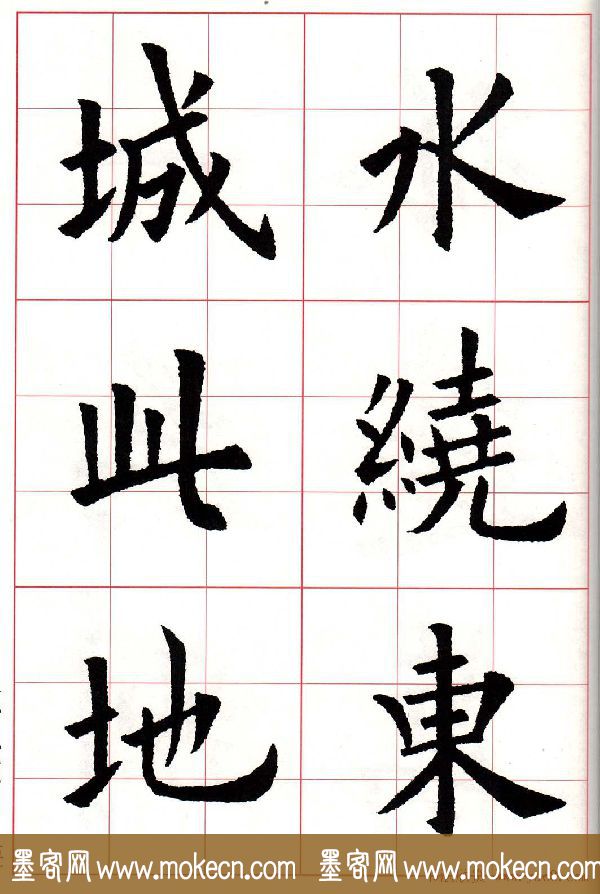 水繞東
城此地
墨客网 www.mokecn.com 墨客网 www.mokecn.com